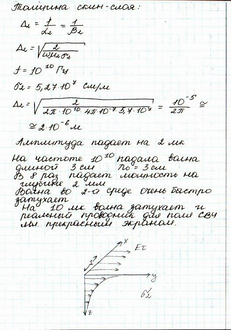 Толщина скин-слоя:
Δ₂ = 1/α₂ = 1/β₂
Δ₂ = √(2/(ωμσ₂))
f = 10¹⁰ Гц
σ₂ = 5,7·10⁷ см/м
Δ₂ = √(2/(2π·10¹⁰·4π·10⁻⁷·5,7·10⁷)) = 10⁻⁵/2π ≅
≅ 2·10⁻⁶ м
Амплитуда падает на 2 мк
На частоте 10¹⁰ падала волна
длиной 3 см
В 8 раз падает мощность на
глубине 2 мм
Волна во 2-й среде очень быстро
затухает
На 10 мк волна затухает и
реальный проводник для поля СВЧ
мы прекрасным экраном.
x
E₂
y
z